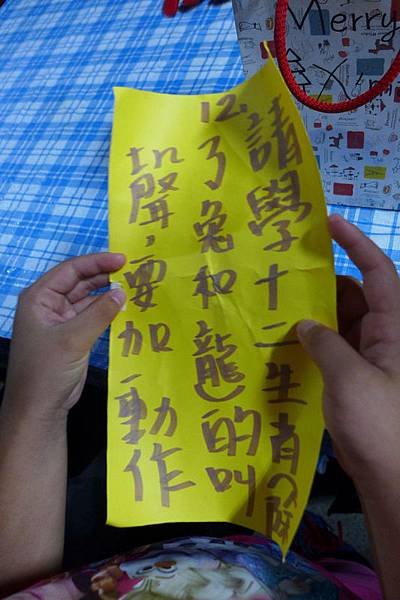 12.
請學十二生肖(除
了兔和龍)的叫
聲,要加動作
Merry